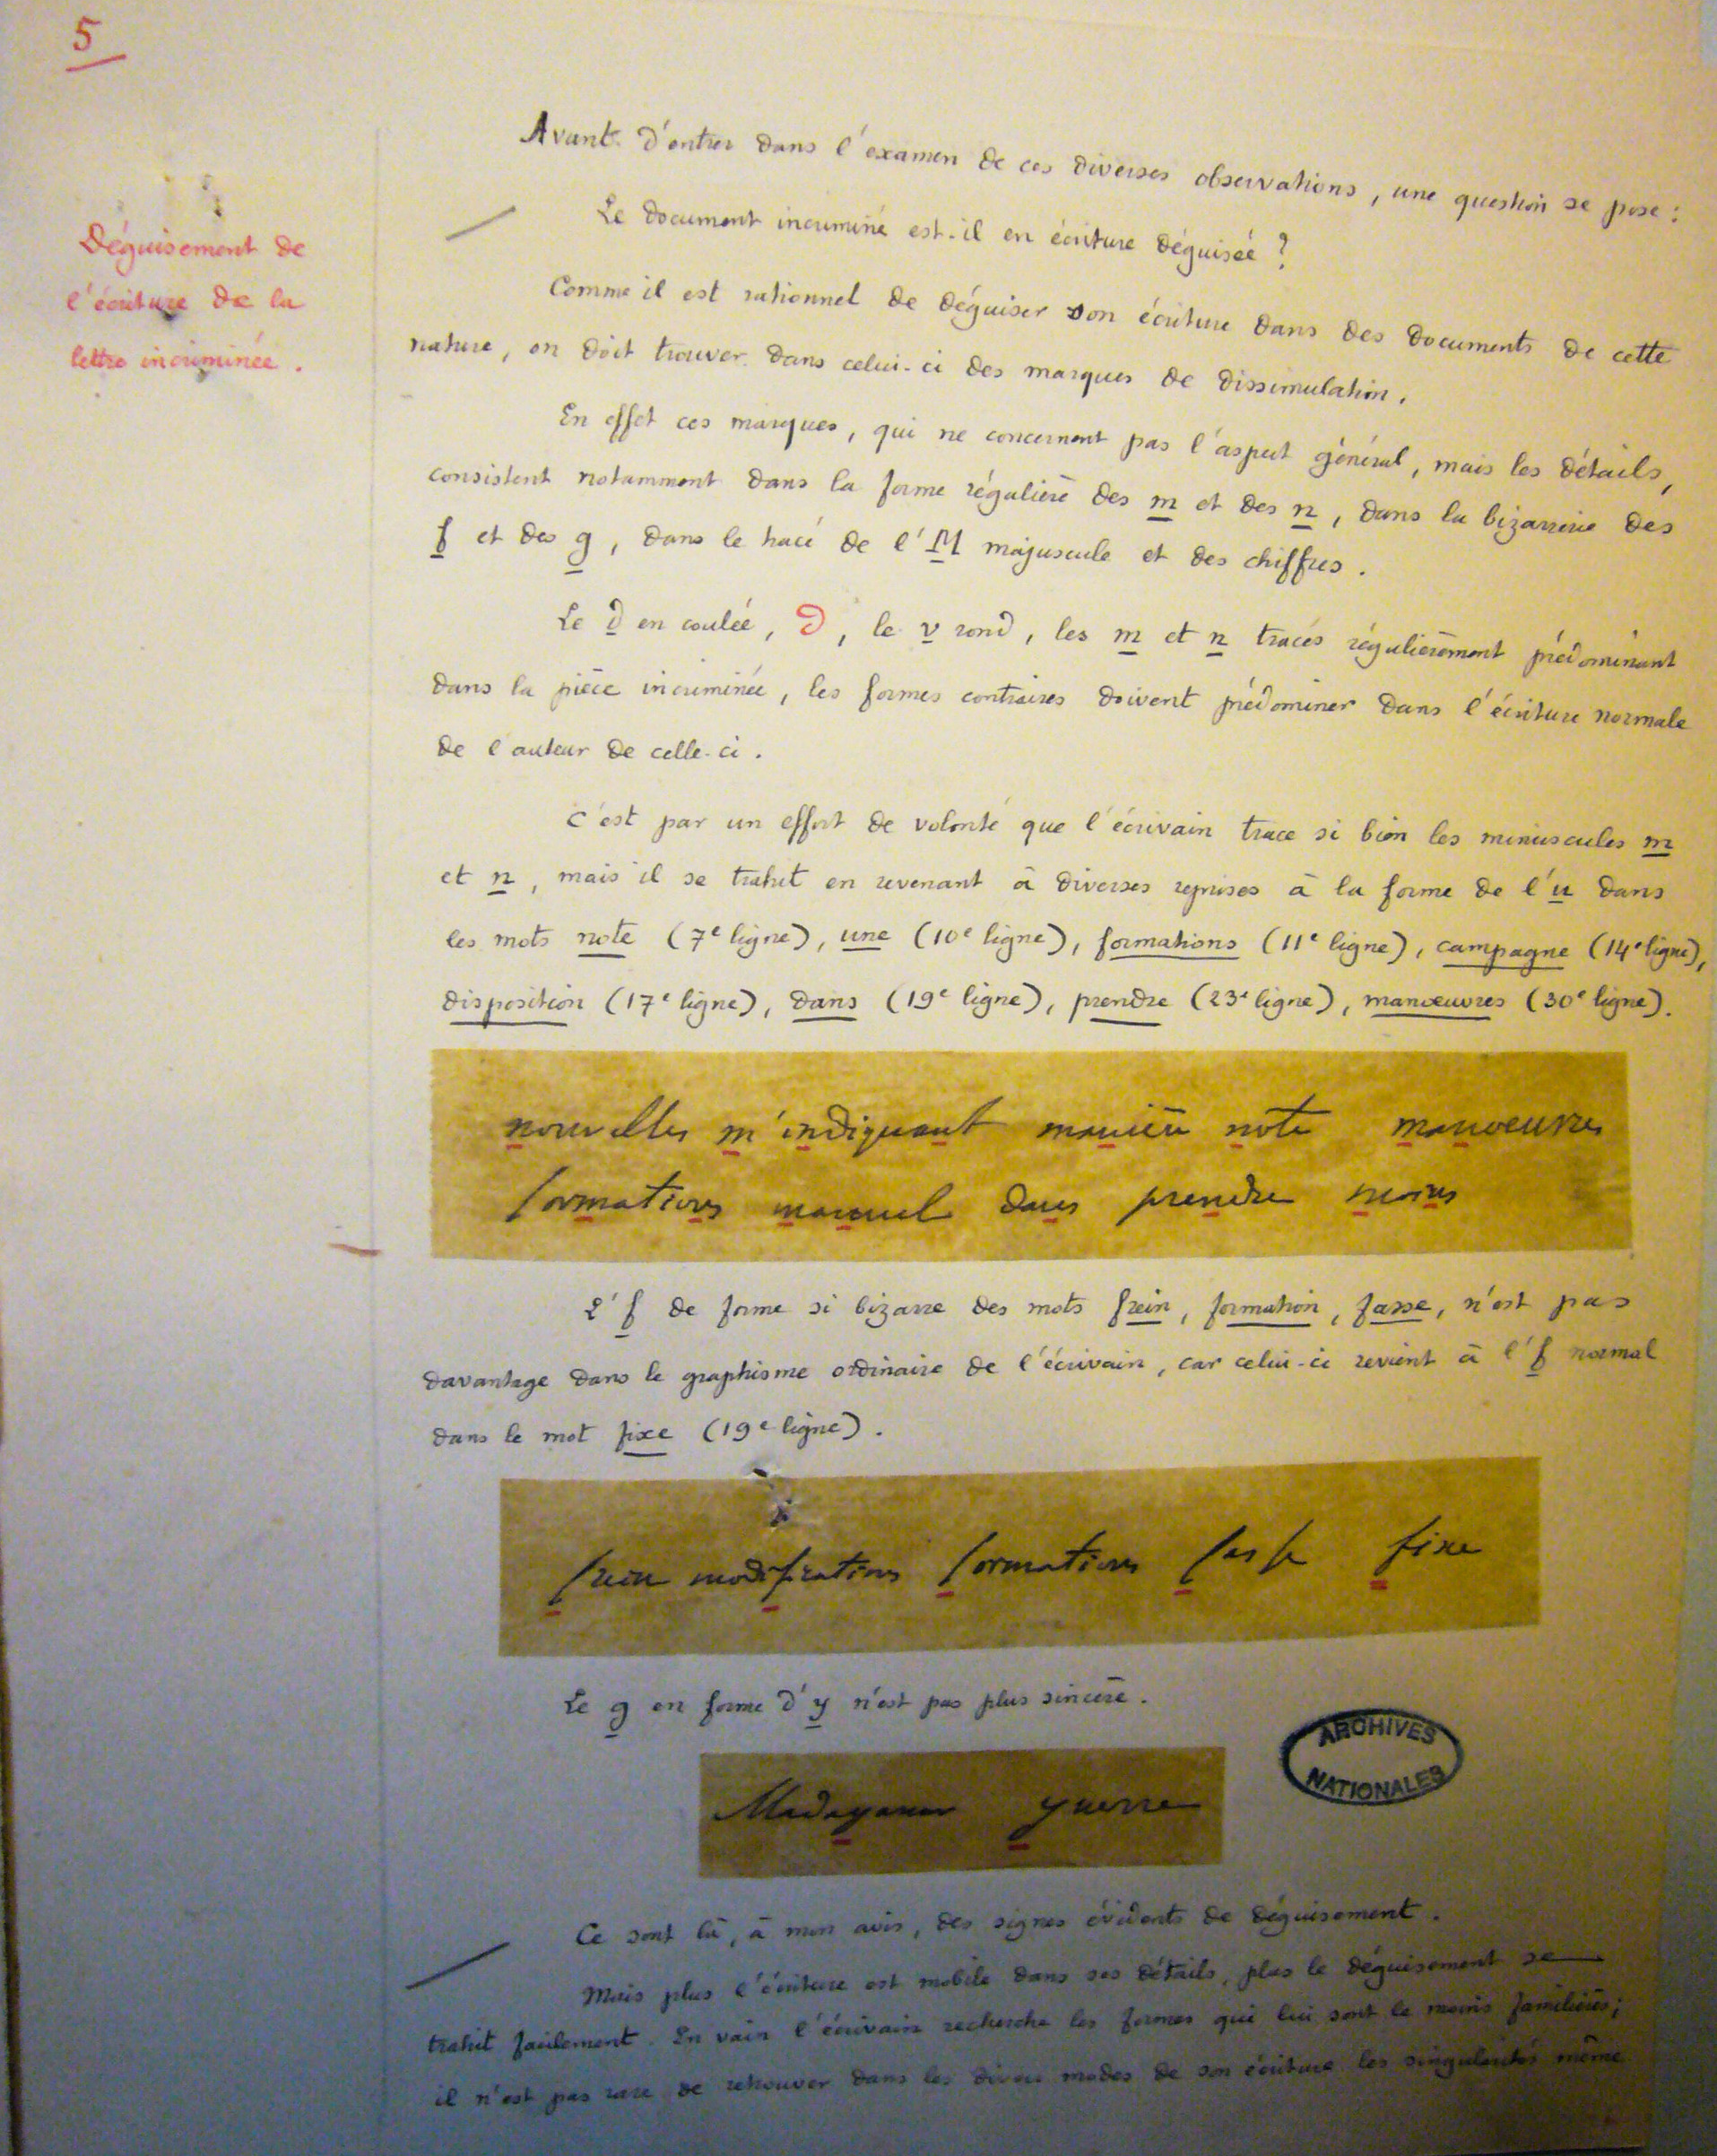 5
Déguisement de
l'écriture de la
lettre incriminée.
Avant d'entrer dans l'examen de ces diverses observations, une question se pose :
Le document incriminé est-il en écriture déguisée ?
Comme il est rationnel de déguiser son écriture dans des documents de cette
nature, on doit trouver dans celui-ci des marques de dissimulation.
En effet ces marques, qui ne concernent pas l'aspect général, mais les détails,
consistent notamment dans la forme régulière des m et des n, dans la bizarrerie des
f et des g, dans le tracé de l'M majuscule et des chiffres.
Le d en coulée, d, le v rond, les m et n tracés régulièrement prédominant
dans la pièce incriminée, les formes contraires doivent prédominer dans l'écriture normale
de l'auteur de celle-ci.
C'est par un effort de volonté que l'écrivain trace si bien les minuscules m
et n, mais il se trahit en revenant à diverses reprises à la forme de l'u dans
les mots note (7e ligne), une (10e ligne), formations (11e ligne), campagne (14e ligne),
disposition (17e ligne), dans (19e ligne), prendre (23e ligne), manœuvres (30e ligne).
nouvelles m'indiquant manière note manoeuvres
formations manuel dans prendre moins
L'f de forme si bizarre des mots frein, formation, fasse, n'est pas
davantage dans le graphisme ordinaire de l'écrivain, car celui-ci revient à l'f normal
dans le mot fixe (19e ligne).
frein modifications formations fasse fixe
Le g en forme d'y n'est pas plus sincère.
ARCHIVES
NATIONALES
Madagascar guerre
Ce sont là, à mon avis, des signes évidents de déguisement.
Mais plus l'écriture est mobile dans ses détails, plus le déguisement se
trahit facilement. En vain l'écrivain recherche les formes qui lui sont le moins familières ;
il n'est pas rare de retrouver dans les divers modes de son écriture les singularités même